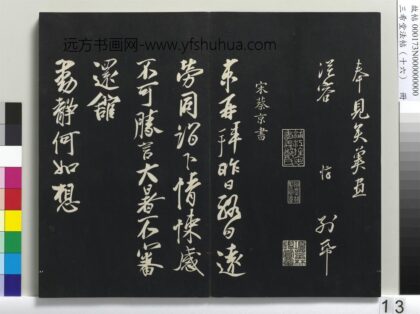 远方书画网-www.yfshuhua.com
故帖 000173N000000000
三希堂法帖（十六） 册
奉見矣冀
從容
宋蔡京書
京再拜昨日終日遠
勞同詣下情悚感
不可勝言大暑不審
還館
動靜何如想
13